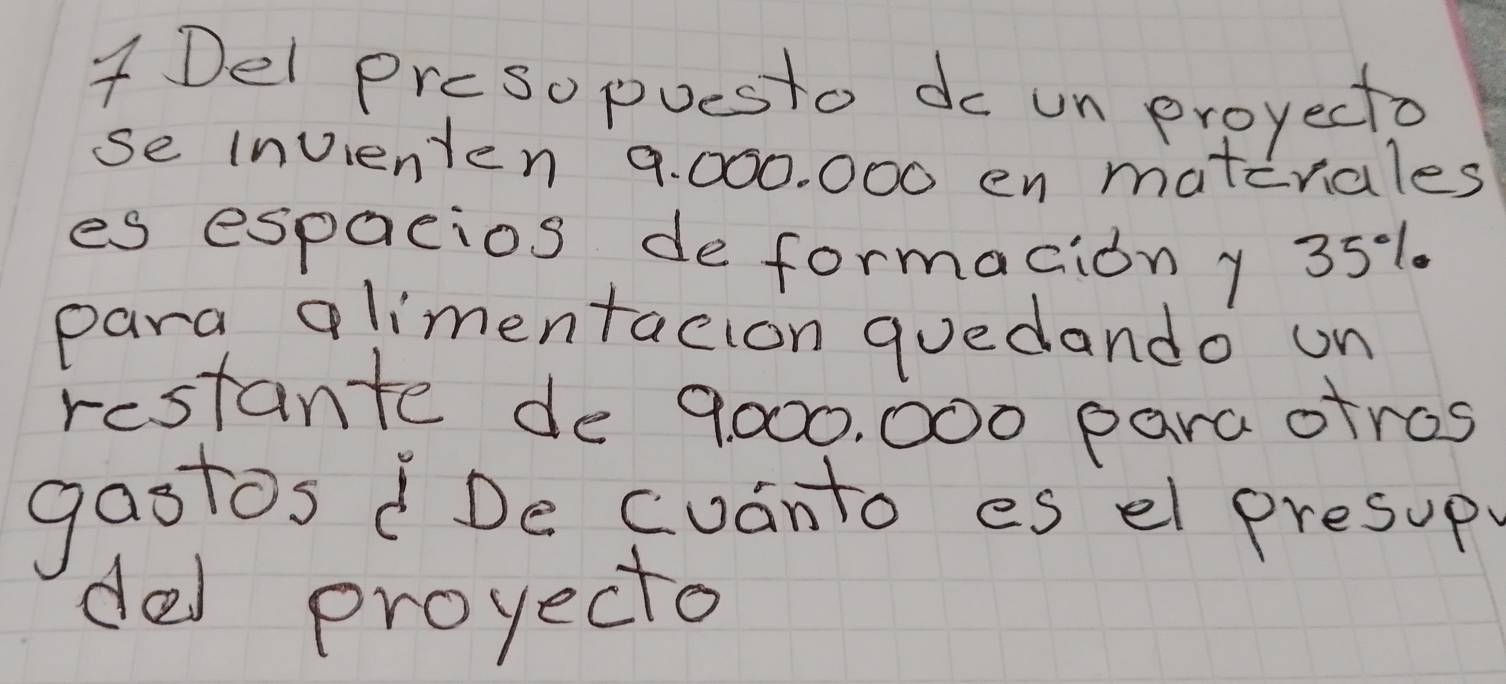 1 Del presopuesto de un proyecto
se invienten 9.000.000 en materiales
es espacios de formación y 35%
para alimentacion quedando un
restante de 9.000.000 para otros
gastos ¿ De cuánto es el presupu
del proyecto